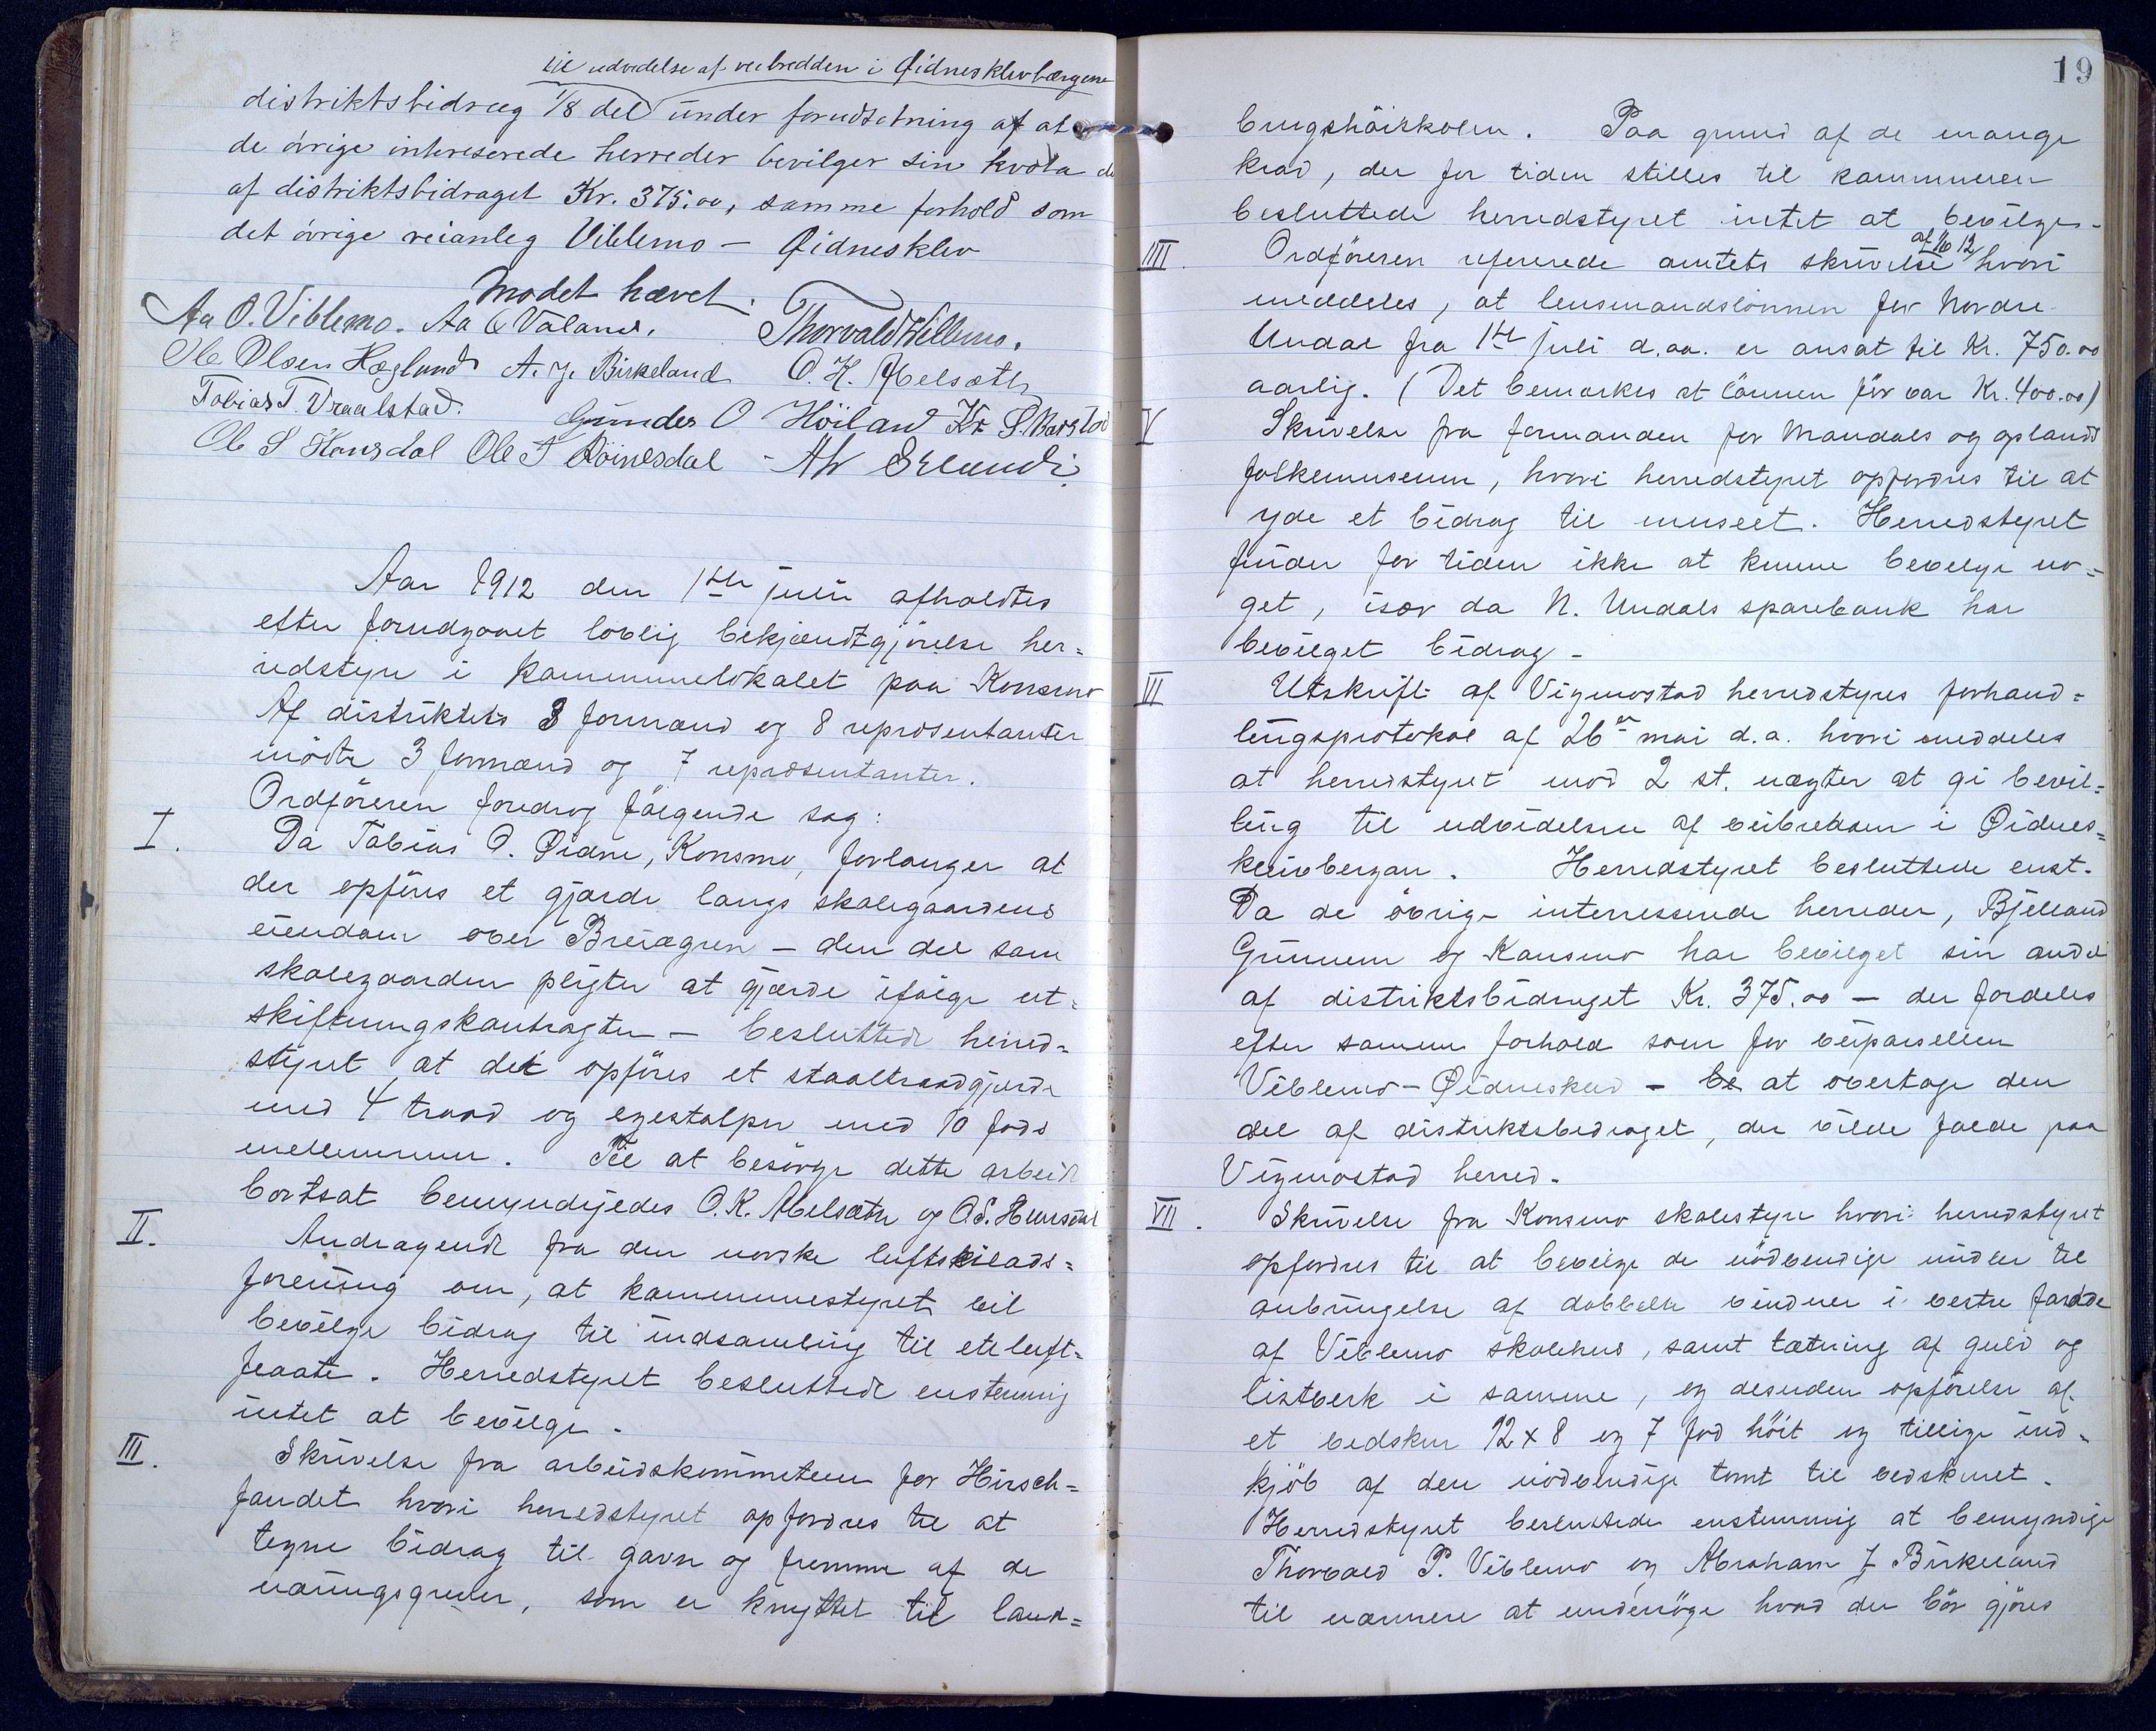 til udvidelse af veibredden i Øidnesklevbærgene
distriktsbidrag 1/8 del under forudsetning af at
de övrige intereserede herreder bevilger sin kvota
af distriktsbidraget Kr. 375.00, samme forhold som
det övrige veianleg Viblemo - Øidnesklev
Mødet hævet.
Aa O. Viblemo. Aa O Valand. Thorvald Viblemo.
Ole Olsen Høgland A. J. Birkeland O. K. Abelsæth
Tobias T. Vraalstad. Gunder O Höiland Kr S. Barstad
Ole S Hønsdal Ole T Röinesdal - Ah Erlandi
Aar 1912 den 1ste juli afholdtes
efter forudgaaet lovlig bekjendtgjörelse her=
redstyre i kommunelokalet paa Konsmo
Af distriktets 3 formænd og 8 repræsentanter
mödte 3 formænd og 7 repræsentanter.
Ordföreren foredrog fölgende sag:
I. Da Tobias O. Øidne, Konsmo, forlanger at
der opföres et gjærde langs skolegaardens
eiendom over Breiagren - den del som
skolegaarden pligter at gjærde ifölge ut=
skiftningskontragten - besluttede herred=
styret at det opföres et staaltraadgjærde
med 4 traad og egestolper med 10 fods
mellemrum. Til at besörge dette arbeide
bortsat bemyndigedes O. K. Abelsæth og O. S. Hønsdal
II. Andragende fra den norske luftskilads=
forening om, at kommunestyret vil
bevilge bidrag til indsamling til et luft=
flaate. Herredstyret besluttede enstemmig
intet at bevilge.
III. Skrivelse fra arbeidskommiteen for Hirsch=
fondet hvori herredstyret opfordres til at
tegne bidrag til gavn og fremme af de
næringsgrener, som er knyttet til land=
19
brugshöiskolen. Paa grund af de mange
krav, der for tiden stilles til kommunen
besluttede herredstyret intet at bevilge-
IIII. Ordföreren refererede amtets skrivelse af 11/6 12 hvori
meddeles, at lensmandslönnen for Nordre
Undal fra 1ste juli d.aa. er ansat til Kr. 750.00
aarlig. (Det bemærkes at lönnen för var Kr. 400.00)
V Skrivelse fra formanden for Mandals og oplands
folkemuseum, hvori herredstyret opfordres til at
yde et bidrag til museet. Herredstyret
finder for tiden ikke at kunne bevilge no=
get, især da N. Undals sparebank har
bevilget bidrag -
III Utskrift af Vigmostad herredstyres forhand=
lingsprotokol af 26de mai d.a. hvori meddeles
at herredstyret mod 2 st. nægter at gi bevil=
ling til udvidelsen af veibredden i Øidnes=
klevbergan. Herredstyret besluttede enst.
Da de övrige interressende herreder, Bjelland
Grinnem og Konsmo har bevilget sin andel
af distriktsbidraget Kr. 375.00 - der fordeles
efter samme forhold som for veiparsellen
Viblemo - Øidneskled - be at overtage den
del af distriktsbedraget, der vilde falde paa
Vigmostad herred.
VII. Skrivelse fra Konsmo skolestyre hvori herredstyret
opfordres til at bevilge de nödvendige midler til
anbringelse af dobbelte vinduer i vestre facade
af Viblemo skolehus, samt tætning af gulv og
listverk i samme, og desuden opförelse af
et vedskur 12 x 8 og 7 fod höit og tillige ind=
kjöb af den nödvendige tomt til vedskuret.
Herredstyret besluttede enstemmig at bemyndige
Thorvald P. Viblemo og Abraham J Birkeland
til nærmere at undersöge hvad der bör gjöres